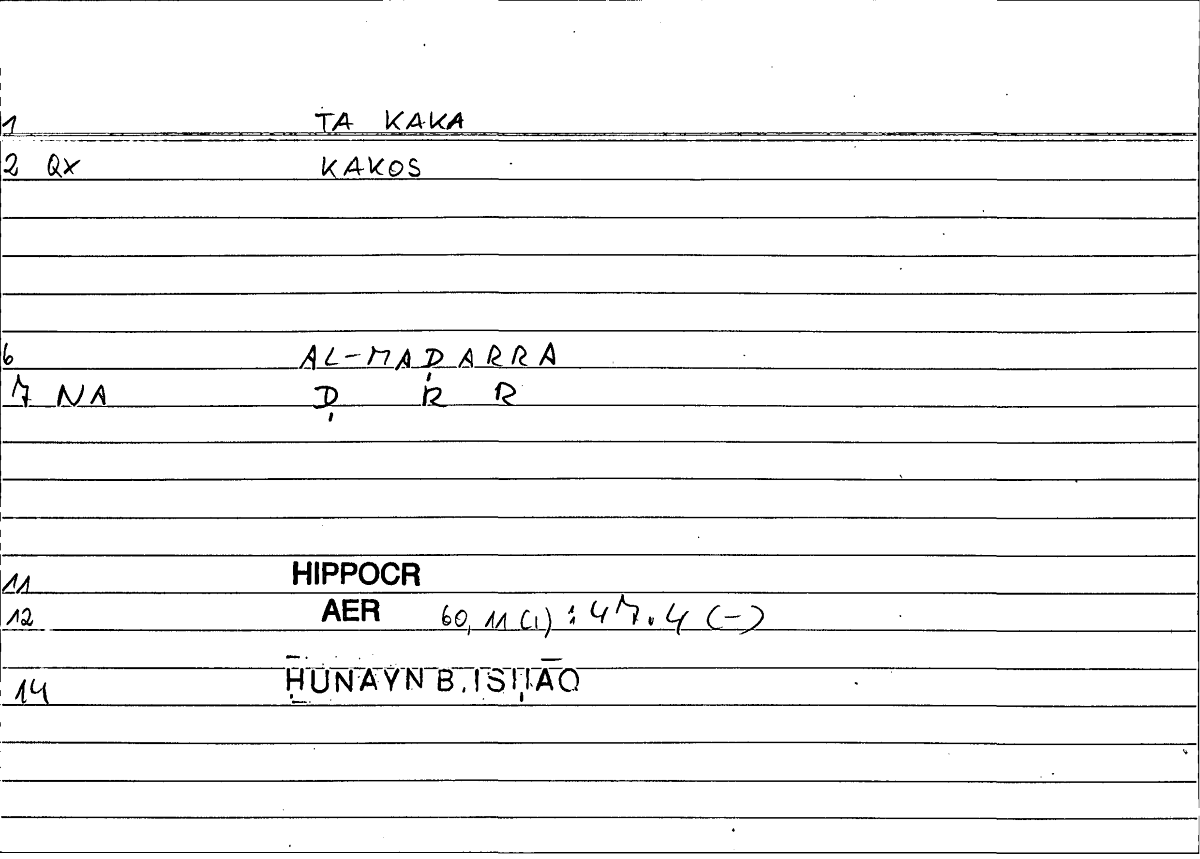 1 TA KAKA
2 QX KAKOS
6 AL-MAḌARRA
7 NA Ḍ R R
11 HIPPOCR
12 AER 60, 11 (1) : 47.4 (-)
14 ḤUNAYN B. ISḤĀQ